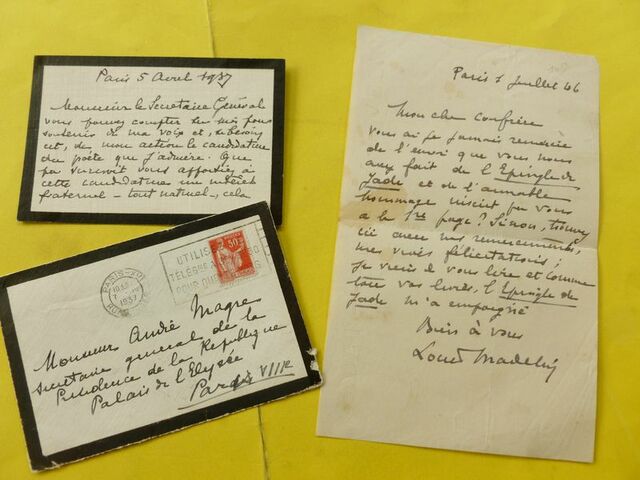 Paris 5 Avril 1937
Monsieur le Secretaire Général
vous pouvez compter sur moi pour
soutenir de ma voix et, si besoin
est, de mon action la candidature
du poète que j'admire. Que
par surcroit vous apportiez à
cette candidature un intérêt
fraternel - tout naturel -, cela
PARIS-XVI
1937
UTILIS
TÉLÉG
POUR
50c
Monsieur André Magre
secrétaire general de la
Présidence de la Republique
Palais de l'Elysée
Paris VIIIe
Paris 7 Juillet 46
Mon cher confrère
Vous ai je jamais remercié
de l'envoi que vous nous
avez fait de l'Epingle de
Jade et de l'aimable
hommage inscrit par vous
a la 1re page? Sinon, trouvez
ici avec nos remerciements,
mes vives félicitations;
je viens de vous lire et comme
tous vos livres, l'Epingle de
Jade m'a empoigné
Bien à vous
Louis Madelin